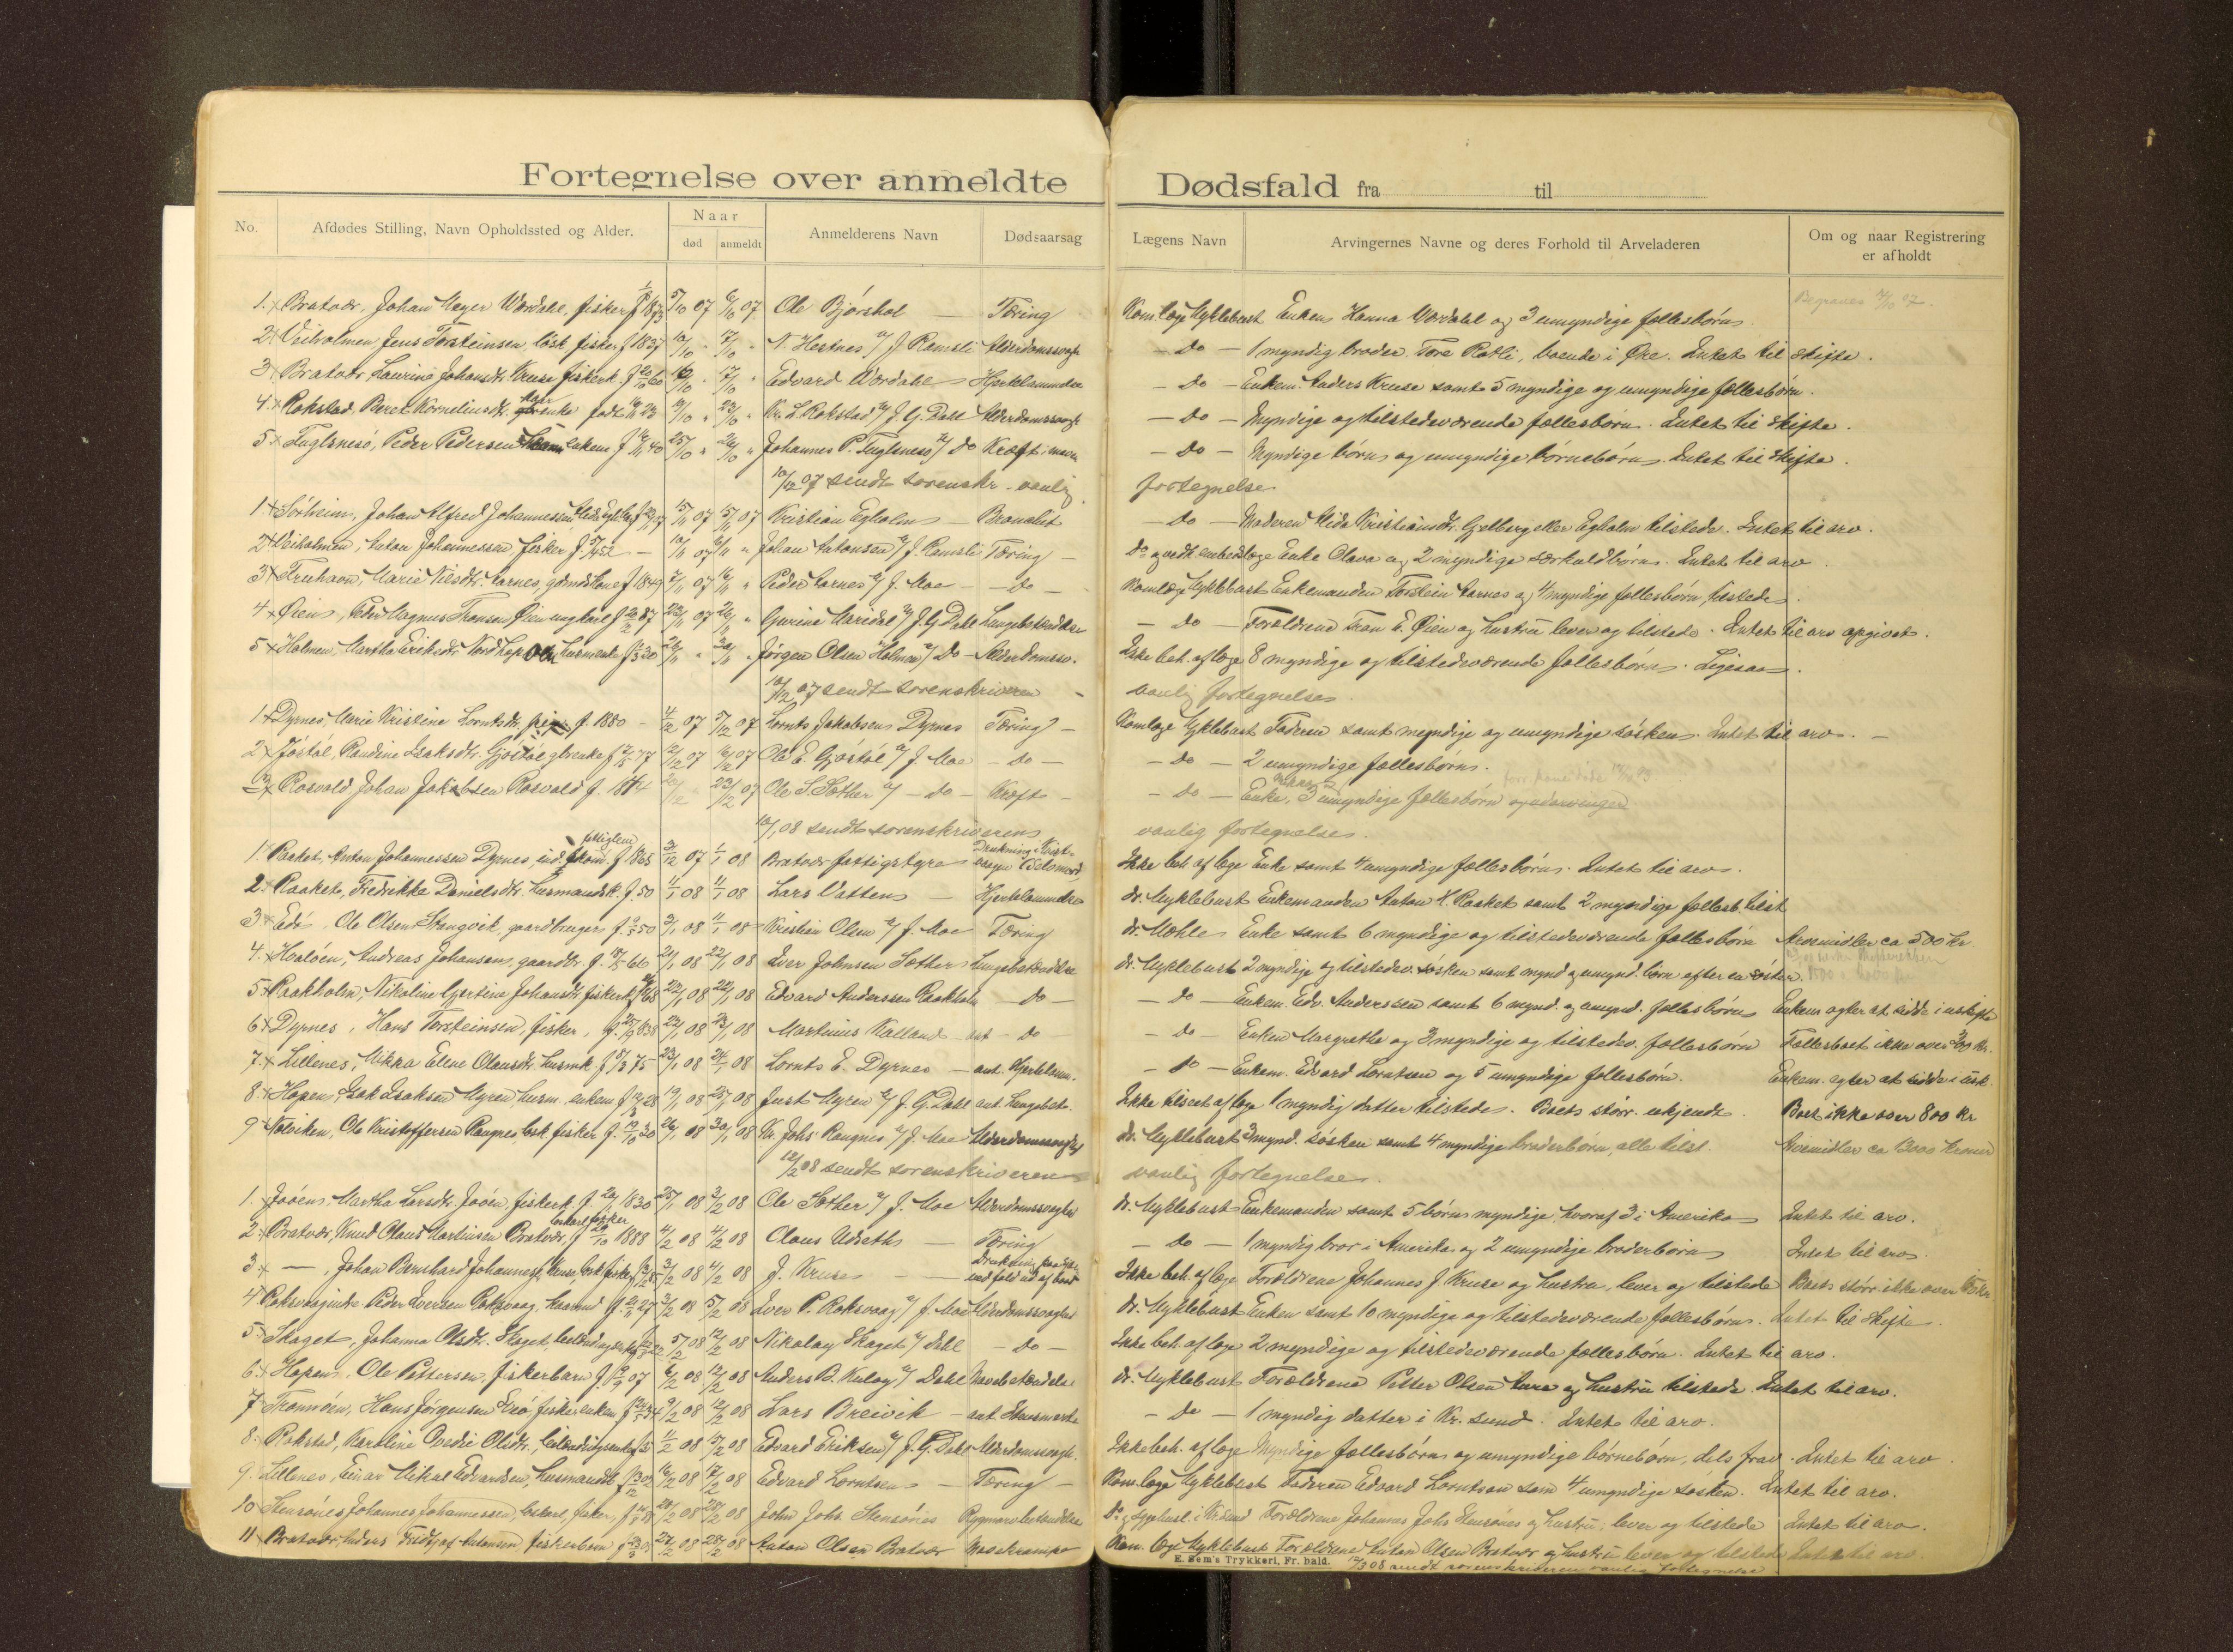 Fortegnelse over anmeldte Dødsfald fra til
No. Afdødes Stilling, Navn Opholdssted og Alder. Naar død anmeldt Anmelderens Navn Dødsaarsag Lægens Navn Arvingernes Navne og deres Forhold til Arveladeren Om og naar Registrering er afholdt
1. Bratvær, Johan Meyer Værdahl, fisker f 1873 5/10 07 6/10 07 Ole Bjørshol — Tæring Kom.læge Myklebust Enken Hanna Værdahl og 3 umyndige fællesbørn. Begraves 07.
2 Veiholmen, Jens Torsteinsen, løsk fisker f 1837 10/10 " 17/10 " N. Hestnes v/ J. Ramsli Alderdomssvagh — Do — 1 myndig broder Tore Rotli, boende i Øre. Intet til skifte.
3 Bratvær, Laurine Johansdtr. Kruse fiskerk. f 60 16/10 " 17/10 " Edvard Værdahl Hjertelammelse — Do — Enkem. Anders Kruse samt 5 myndige og umyndige fællesbørn.
4. Rokstad, Beret Kornelinsdtr. enke født 23 /10 " 23/10 " Kr. L. Rokstad v/ J. G. Dahl Alderdomssvagh — Do — Myndige og tilstedeværende fællesbørn. Intet til skifte.
5 Fuglsnesø, Peder Pedersen enkem f 40 25/10 " 26/10 " Johannes P. Fuglsnesø v/ Do Kræft i maven — Do — Myndige børn og umyndige børnebørn. Intet til skifte.
10/12 07 sendt sorenskr. vanlig fortegnelse
1. Sørheim, Johan Alfred Johannessen f 15/11 07 15/11 07 Kristian Egholm — Bronchit — Do — Moderen Alida Kristiansdtr. Gjelberg eller Egholm tilstede. Intet til arv.
2 Veiholmen, Anton Johannessen, fisker f. 52 — 10/11 07 16/11 " Johan Antonsen v/ J. Ramsli Tæring — Do og vedk. embedslæge Enke Olava og 2 myndige særkuldbørn. Intet til arv.
3 Fruhavn, Marie Nilsdtr. Aarnes, gdmdskone f 1849 7/11 07 16/11 " Peder Aarnes v/ J. Moe — Do — Komlæge Myklebust Enkemanden Torstein Aarnes og 4 myndige fællesbørn, tilstede.
4 Øien, Peder Magnus Tronsen Øien ungkarl f 87 22/11 07 26/11 " Gurine Maridal v/ J. G Dahl Lungebetændelse — Do — Forældrene Tron E. Øien og hustru lever og tilstede. Intet til arv opgivet.
5 Holmen, Martha Eriksdtr. Nordhopen husmenke f 30 26/11 " 30/11 " Jørgen Olsen Holmen v/ Do — Alderdomssv. Ikke beh. af læge 8 myndige og tilstedeværende fællesbørn. Ligesaa.
10/12 07 sendt sorenskriveren vanlig fortegnelse
1 Dyrnes, Marie Kristine Lorntsdtr. pige f. 1880 — 4/12 07 5/12 07 Lornts Jakobsen Dyrnes Tæring — Komlæge Myklebust Faderen samt myndige og umyndige søsken. Intet til arv. —
2 Jøstøl, Randine Isaksdtr. Gjøstøl gbrenke f 77 12/12 07 16/12 07 Ole E. Gjøstøl v/ J. Moe — Do — — Do — 2 umyndige fællesbørn.
3 Rosvold Johan Jakobsen Rosvold f. 1844 20/12 23/12 07 Ole S. Sæther v/ — do — Kræft — — Do — Enke, 3 umyndige fællesbørn
10/1 08 sendt sorenskriveren vanlig fortegnelse.
1. Raaket, Anton Johannessen Dyrnes f 1865 31/12 07 1/1 08 Bratvær fattigstyre Drukning Ikke beh. af læge Enke samt 4 umyndige fællesbørn. Intet til arv.
2. Raaket, Fredrikke Danielsdtr. husmandsk. f. 50 11/1 08 11/1 08 Lars Vatten — Hjertelammelse dr. Myklebust Enkemanden Anton H. Raaket samt 2 myndige fællesb. tilst
3 Edø, Ole Olsen Stangvik, gaardbruger f 50 3/1 08 11/1 08 Kristian Olsen v/ J. Moe Tæring dr. Mæhle Enke samt 6 myndige og tilstedeværende fællesbørn Arvemidler ca 500 kr.
4. Hvaløen, Andreas Johansen, gaardbr. f. 66 21/1 08 22/1 08 Iver Johnsen Sæther Lungebetændelse dr. Myklebust 2 myndige og tilstedev. søsken samt mynd og umynd. børn efter en søster.
5 Raakholm, Nikoline Gjertine Johansdtr. fiskerk. f 68 22/1 08 22/1 08 Edvard Anderssen Raakholm — Do — — Do — Enkem. Edv. Anderssen samt 6 mynd. og umynd. fællesbørn Enkem. agter at sidde i uskifte
6 Dyrnes, Hans Torsteinsen, fisker, f. 1838 22/1 08 23/1 08 Martinus Kalland — ant — Do — Do — Enken Margrethe og 3 myndige og tilstedev. fællesbørn Fællesboet ikke over 300 kr.
7. Lillenes, Mikka Elene Olausdtr. husmk f 75 — 23/1 08 24/1 08 Lornts E. Dyrnes — ant. Hjertelam. — Do — Enkem. Edvard Lorntsen og 5 umyndige fællesbørn. Enkem. agter at sidde i usk.
8. Hopen, Isak Isaksen Myren, husm. enkem f 28 19/1 08 25/1 08 Just Myren v/ J. G. Dahl ant. Lungebet. Ikke tilseet af læge 1 myndig datter tilstede. Boets størr. ukjendt. Boet ikke over 800 kr
9 Nelviken, Ole Kristoffersen Raugnes løsk fisker f. 30 26/1 08 30/1 08 Kr. Johs Raugnes v/ J. Moe Alderdomssvaghed dr. Myklebust 3 mynd. søsken samt 4 myndige broderbørn, alle tilst. Arvemidler ca 1300 kroner
12/2 08 sendt sorenskriveren vanlig fortegnelse.
1. Jøøen, Martha Larsdtr. Jøøen, fiskerk. f. 1830 25/1 08 3/2 08 Ole Sæther v/ J. Moe Alderdomssvaghed dr. Myklebust Enkemanden samt 5 børn myndige, hvoraf 3 i Amerika Intet til arv.
2. Bratvær, Knud Olaus Martinsen Bratvær, f 1888 4/2 08 4/2 08 Olaus Udseth — Tæring — Do — 1 myndig bror i Amerika og 2 umyndige broderbørn Intet til arv.
3. —, Johan Bernhard Johannessen Kruse, løsk fisker f 3/2 08 4/2 08 J. Kruse — Drukning Ikke beh. af læge Forældrene Johannes J. Kruse og hustru, lever og tilstede Boets størr. ikke over
4 Roksvaagvik Peder Iversen Roksvaag, kaarmd f. 27 3/2 08 5/2 08 Iver P. Roksvaag v/ J Moe Alderdomssvaghed dr. Myklebust Enken samt 10 myndige og tilstedeværende fællesbørn. Intet til skifte.
5. Skaget, Johanna Olsdtr. Skaget, 22 5/2 08 12/2 08 Nikolay Skaget v/ Dahl — Do — Ikke beh. af læge 2 myndige og tilstedeværende fællesbørn. Intet til arv.
6. Hopen, Ole Pettersen, fiskerbarn f. 07 6/2 08 12/2 08 Anders B. Kuløy v/ Dahl dr. Myklebust Forældrene Petter Olsen Aure og hustru tilstede. Intet til arv.
7 Tronvøien, Hans Jørgensen Edø, fisker enkem f 34 9/2 08 12/2 08 Lars Breivik — ant. — Do — 1 myndig datter i Kr. sund. Intet til arv.
8. Rokstad, Karoline Ovedie Olsdtr., 11/2 08 15/2 08 Edvard Eriksen v/ J. G. Dahl Alderdomssvagh. Ikke beh. af læge Myndige fællesbørn og umyndige børnebørn, dels frav. Intet til arv.
9. Lillenes, Einar Mikal Edvardsen, husmandsb. f 02 16/2 08 17/2 08 Edvard Lorntsen — Tæring — Kom. læge Myklebust Faderen Edvard Lorntsen som 4 umyndige søsken. Intet til arv.
10 Stensønes Johannes Johannessen, løskarl, fisker, f 20/2 08 28/2 08 John Johs Stensønes Rygmarvbetændelse Do Forældrene Johannes Johs Stensønes og hustru, lever og tilstede Intet til arv.
11 Bratvær, Anders Fridtjof Antonsen fiskerbarn f 27/2 08 28/2 08 Anton Olsen Bratvær Kom. læge Myklebust Forældrene Anton Olsen Bratvær og hustru lever og tilstede Intet til arv
E. Sem's Trykkeri, Fr. hald. 12/3 08 sendt sorenskriveren vanlig fortegnelse.